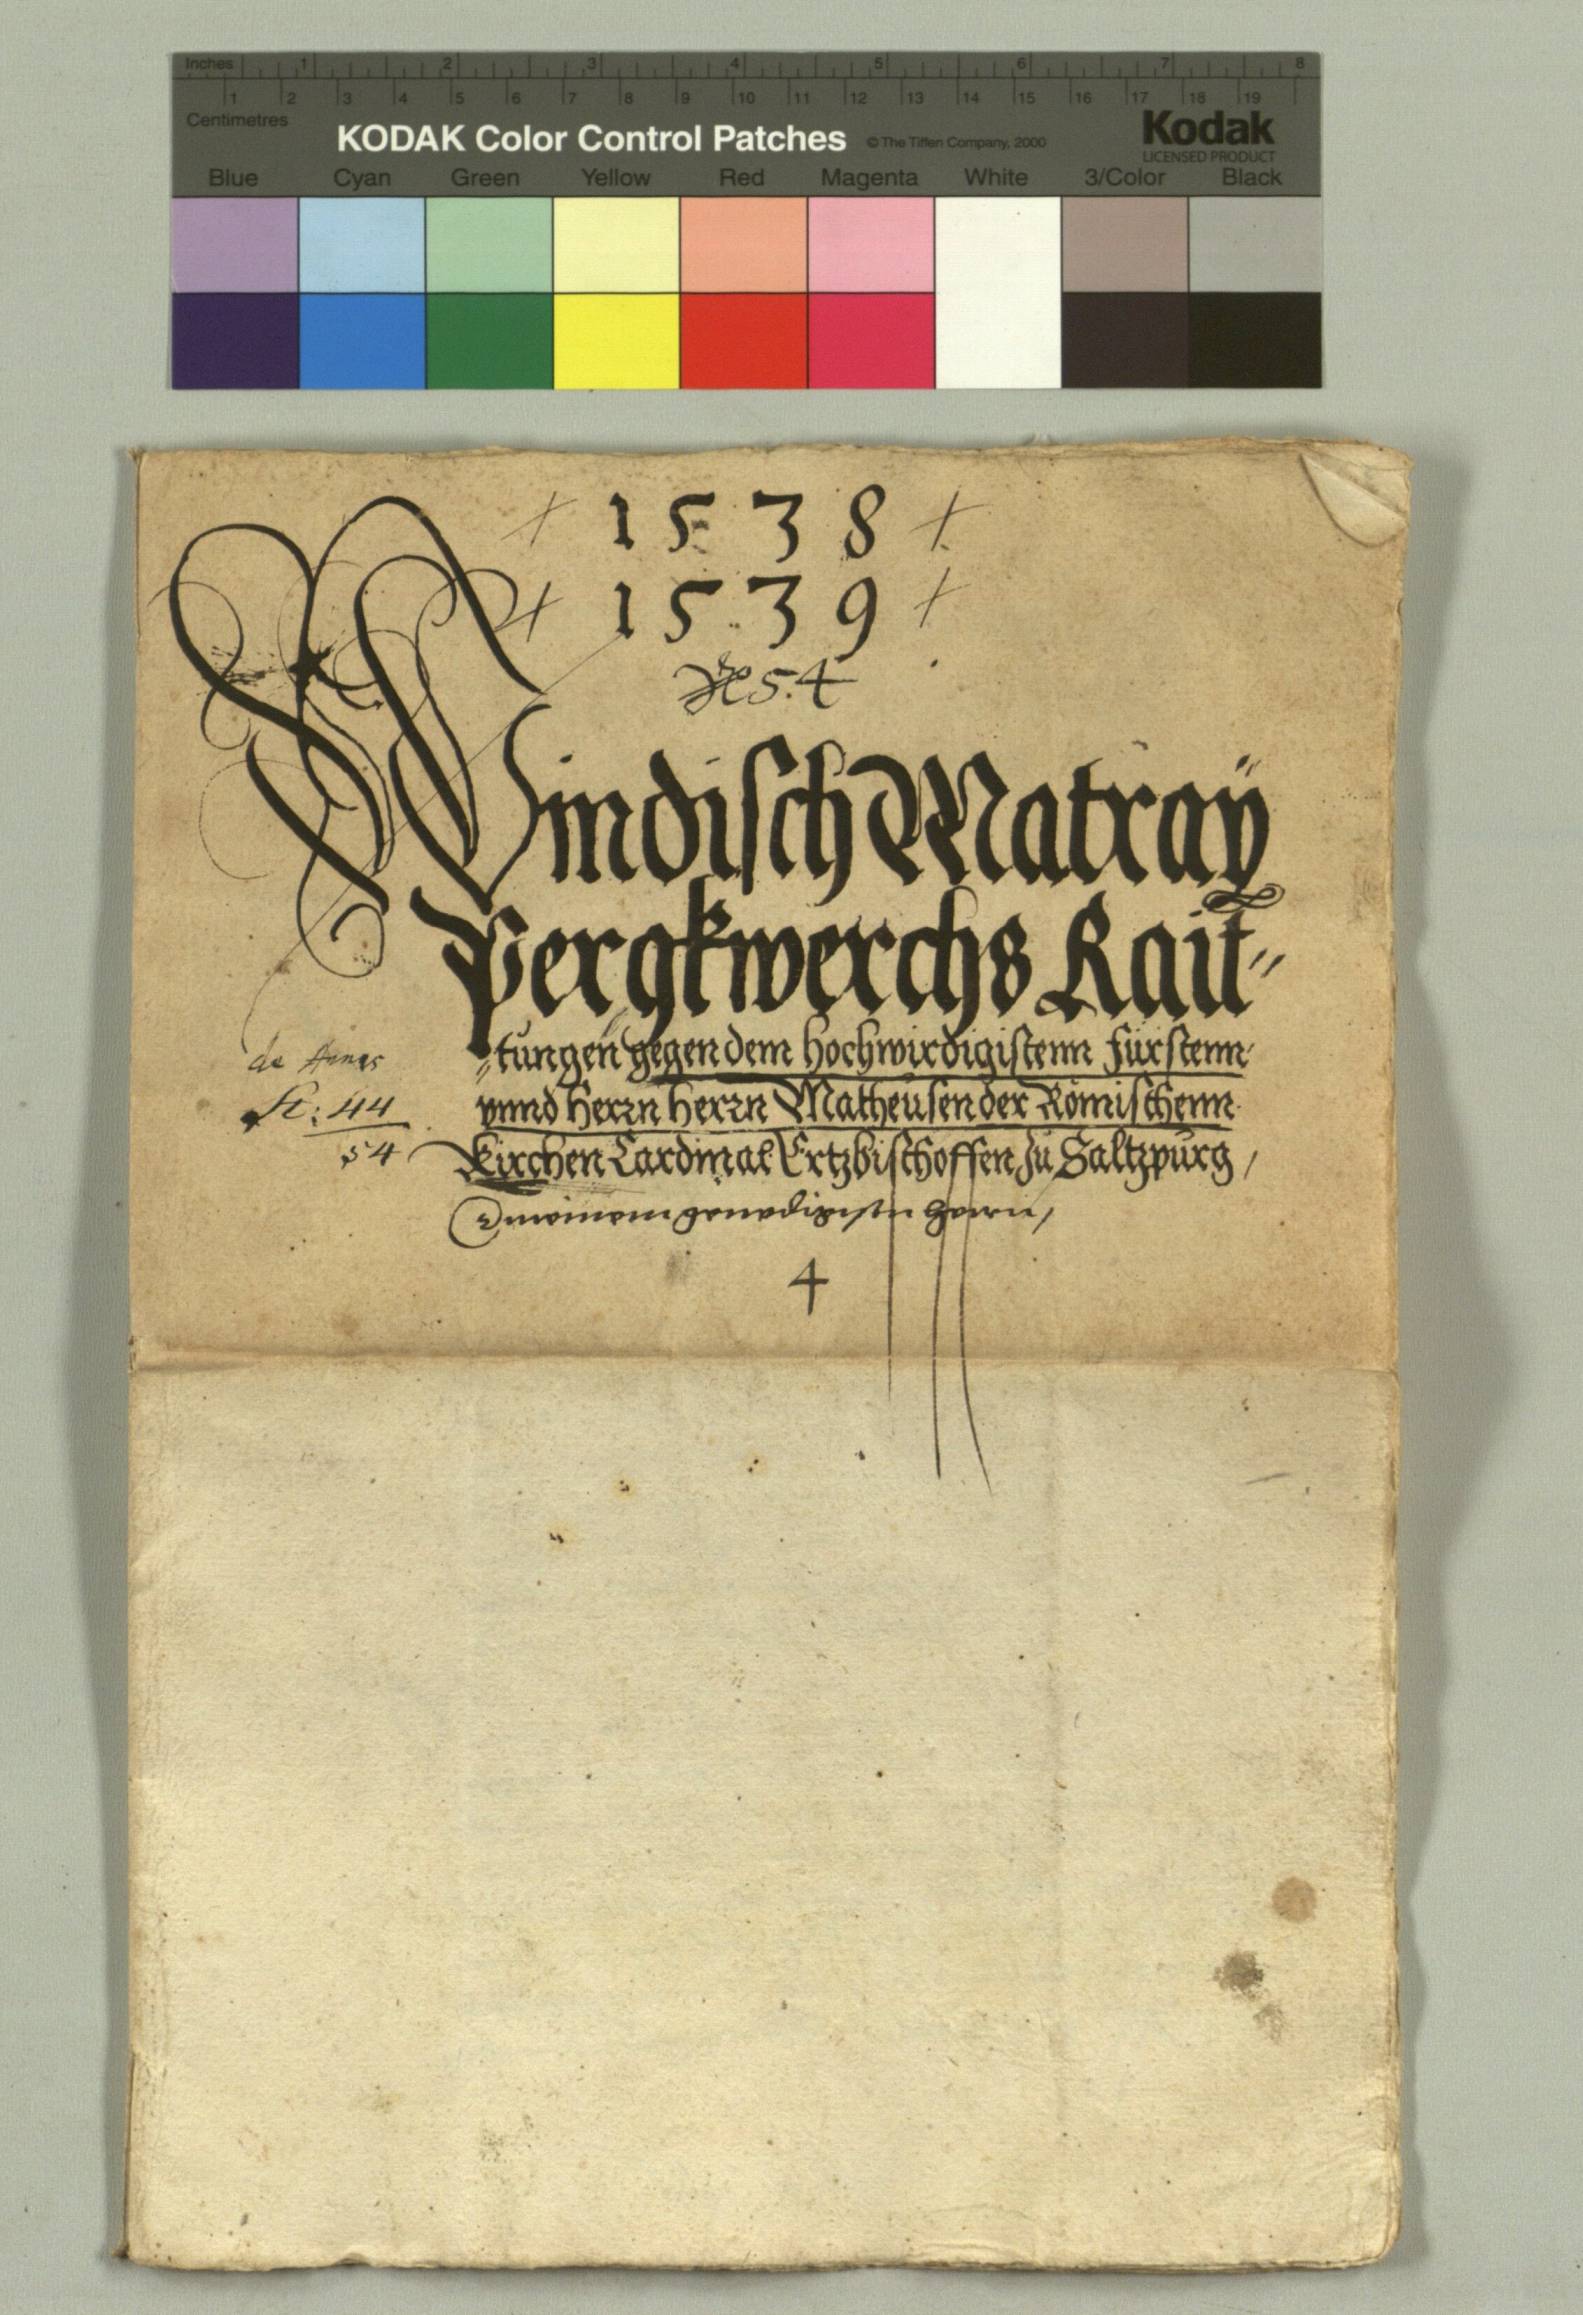 Inches 1 2 3 4 5 6 7 8
1 2 3 4 5 6 7 8 9 10 11 12 13 14 15 16 17 18 19
Centimetres
KODAK Color Control Patches © The Tiffen Company, 2000 Kodak
LICENSED PRODUCT
Blue Cyan Green Yellow Red Magenta White 3/Color Black
+ 1538 +
+ 1539 +
54
Windisch Matraÿ
Pergkwerchs Rait„
„tungen gegen dem hochwirdigistenn Fürstenn
vnnd Herrn Herrn Matheusen der Römischenn
Kirchen Cardinal Ertzbischoffen zu Saltzpurg /
de Annis
44
54
4